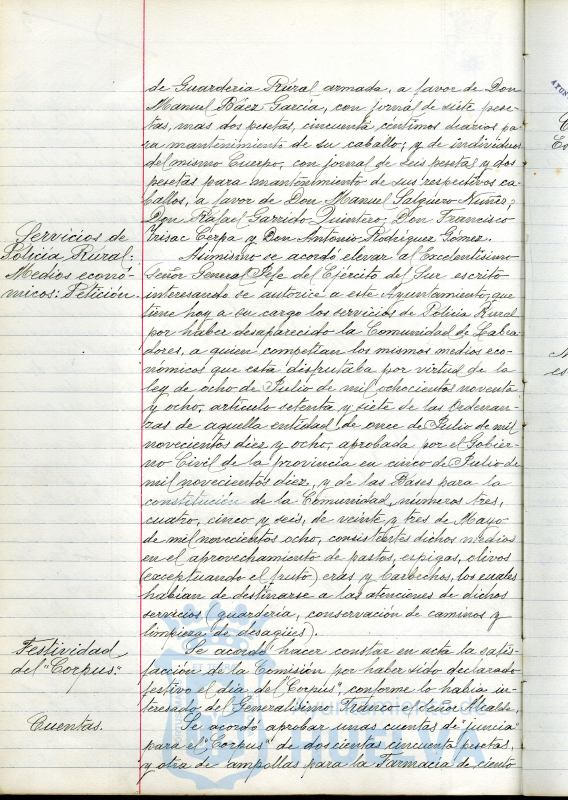 de Guardería Rural armada, a favor de Don
Manuel Báez García, con jornal de siete pese-
tas, mas dos pesetas, cincuenta céntimos diarios pa-
ra mantenimiento de su caballo; y de individuos
del mismo Cuerpo, con jornal de seis pesetas y dos
pesetas para mantenimiento de sus respectivos ca-
ballos, a favor de Don Manuel Salguero Nuñez;
Don Rafael Garrido Quintero; Don Francisco
Trisac Cerpa y Don Antonio Rodríguez Gómez.
Servicios de
Policía Rural:
Medios econó-
micos: Petición.
Asimismo se acordó elevar al Excelentísimo
Señor General Jefe del Ejército del Sur escrito
interesando se autorice a este Ayuntamiento, que
tiene hoy a su cargo los servicios de Policía Rural
por haber desaparecido la Comunidad de Labra-
dores, a quien competían los mismos medios eco-
nómicos que esta disfrutaba por virtud de la
ley de ocho de Julio de mil ochocientos noventa
y ocho, artículo setenta y siete de las Ordenan-
zas de aquella entidad, de once de Julio de mil
novecientos diez y ocho, aprobada por el Gobier-
no Civil de la provincia en cinco de Julio de
mil novecientos diez, y de las Bases para la
constitución de la Comunidad, números tres,
cuatro, cinco y seis, de veinte y tres de Mayo
de mil novecientos ocho, consistentes dichos medios
en el aprovechamiento de pastos, espigas, olivos
(exceptuando el fruto) eras y barbechos, los cuales
habían de destinarse a las atenciones de dichos
servicios (guardería, conservación de caminos y
limpieza de desagües).
Festividad
del "Corpus".
Se acordó hacer constar en acta la satis-
facción de la Comisión por haber sido declarado
festivo el día del "Corpus", conforme lo había in-
teresado del Generalísimo Franco el señor Alcalde.
Cuentas.
Se acordó aprobar unas cuentas de "juncia"
para el "Corpus" de doscientas cincuenta pesetas,
y otra de ampollas para la Farmacia de ciento